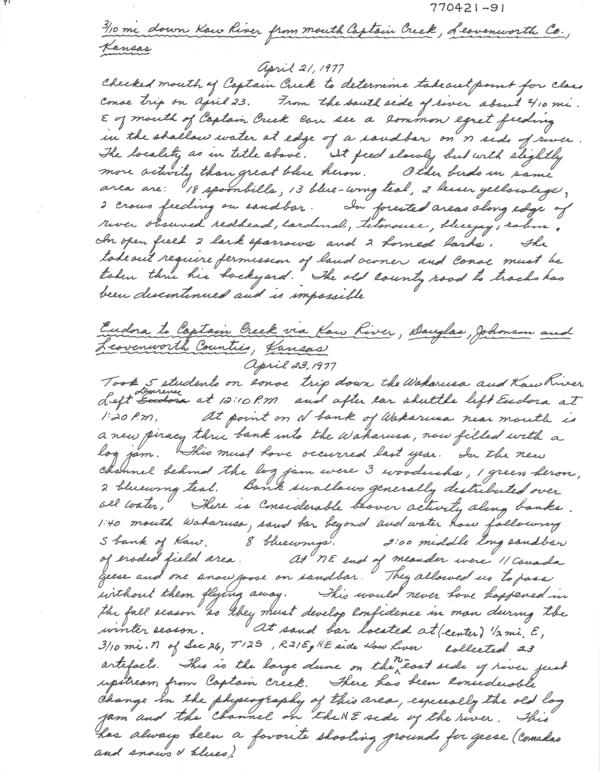 770421-91
3/10 mi down Kaw River from mouth Captain Creek, Leavenworth Co.,
Kansas
April 21, 1977
Checked mouth of Captain Creek to determine takeout point for class
canoe trip on April 23. From the south side of river about 4/10 mi.
E of mouth of Captain Creek can see a common egret feeding
in the shallow water at edge of a sandbar on N side of river.
The locality as in title above. It feed slowly but with slightly
more activity than great blue heron. Other birds in same
area are: 18 spoonbills, 13 blue-wing teal, 2 lesser yellowlegs,
2 crows feeding on sandbar. In forested areas along edge of
river observed redhead, cardinal, titmouse, bluejay, robin.
In open field 2 lark sparrows and 2 horned larks. The
takeout require permission of land owner and canoe must be
taken thru his backyard. The old county road to tracks has
been discontinued and is impossible
Eudora to Captain Creek via Kaw River, Douglas, Johnson and
Leavenworth Counties, Kansas
April 23, 1977
Took 5 students on canoe trip down the Wakarusa and Kaw River
Left Eudora Lawrence at 12:10 PM and after car shuttle left Eudora at
1:20 PM. At point on N bank of Wakarusa near mouth is
a new piracy thru bank into the Wakarusa, now filled with a
log jam. This must have occurred last year. In the new
channel behind the log jam were 3 woodducks, 1 green heron,
2 bluewing teal. Bank swallows generally distributed over
all water. There is considerable beaver activity along banks.
1:40 mouth Wakarusa, sand bar beyond and water now following
S bank of Kaw. 8 bluewings. 2:00 middle long sandbar
of eroded field area. At NE end of meander were 11 Canada
geese and one snow goose on sandbar. They allowed us to pass
without them flying away. This would never have happened in
the fall season so they must develop confidence in man during the
winter season. At sand bar located at (center) 1/2 mi. E,
3/10 mi. N of Sec 26, T12S, R21E, NE side Kaw River collected 23
artifacts. This is the large dune on the N-east side of river just
upstream from Captain Creek. There has been considerable
change in the physiography of this area, especially the old log
jam and the channel on the NE side of the river. This
has always been a favorite shooting grounds for geese (Canadas
and snows & blues).